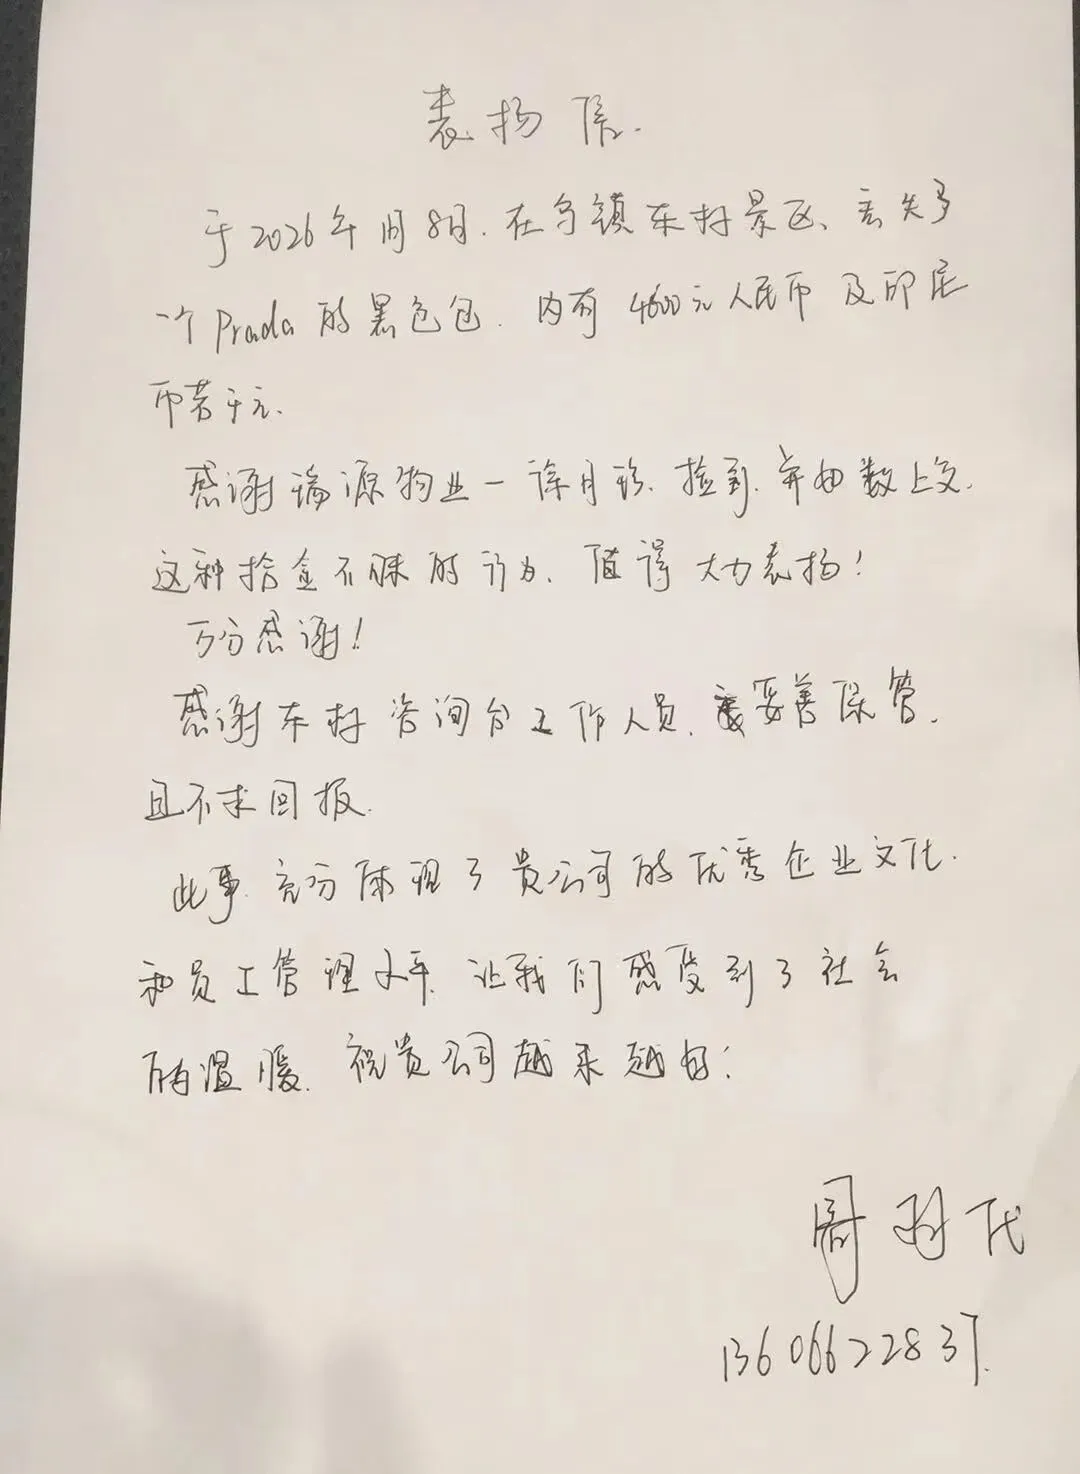 表扬信.
于2026年1月8日.在乌镇东栅景区、丢失了
一个Prada的黑色包.内有4600元人民币及印尼
币若干元.
感谢瑞源物业一徐月珍.捡到.并如数上交.
这种拾金不昧的行为、值得大力表扬!
万分感谢!
感谢东栅咨询台工作人员.妥善保管.
且不求回报.
此事.充分体现了贵公司的优秀企业文化.
和员工管理水平.让我们感受到了社会
的温暖.祝贵公司越来越好!
周
13606622837.